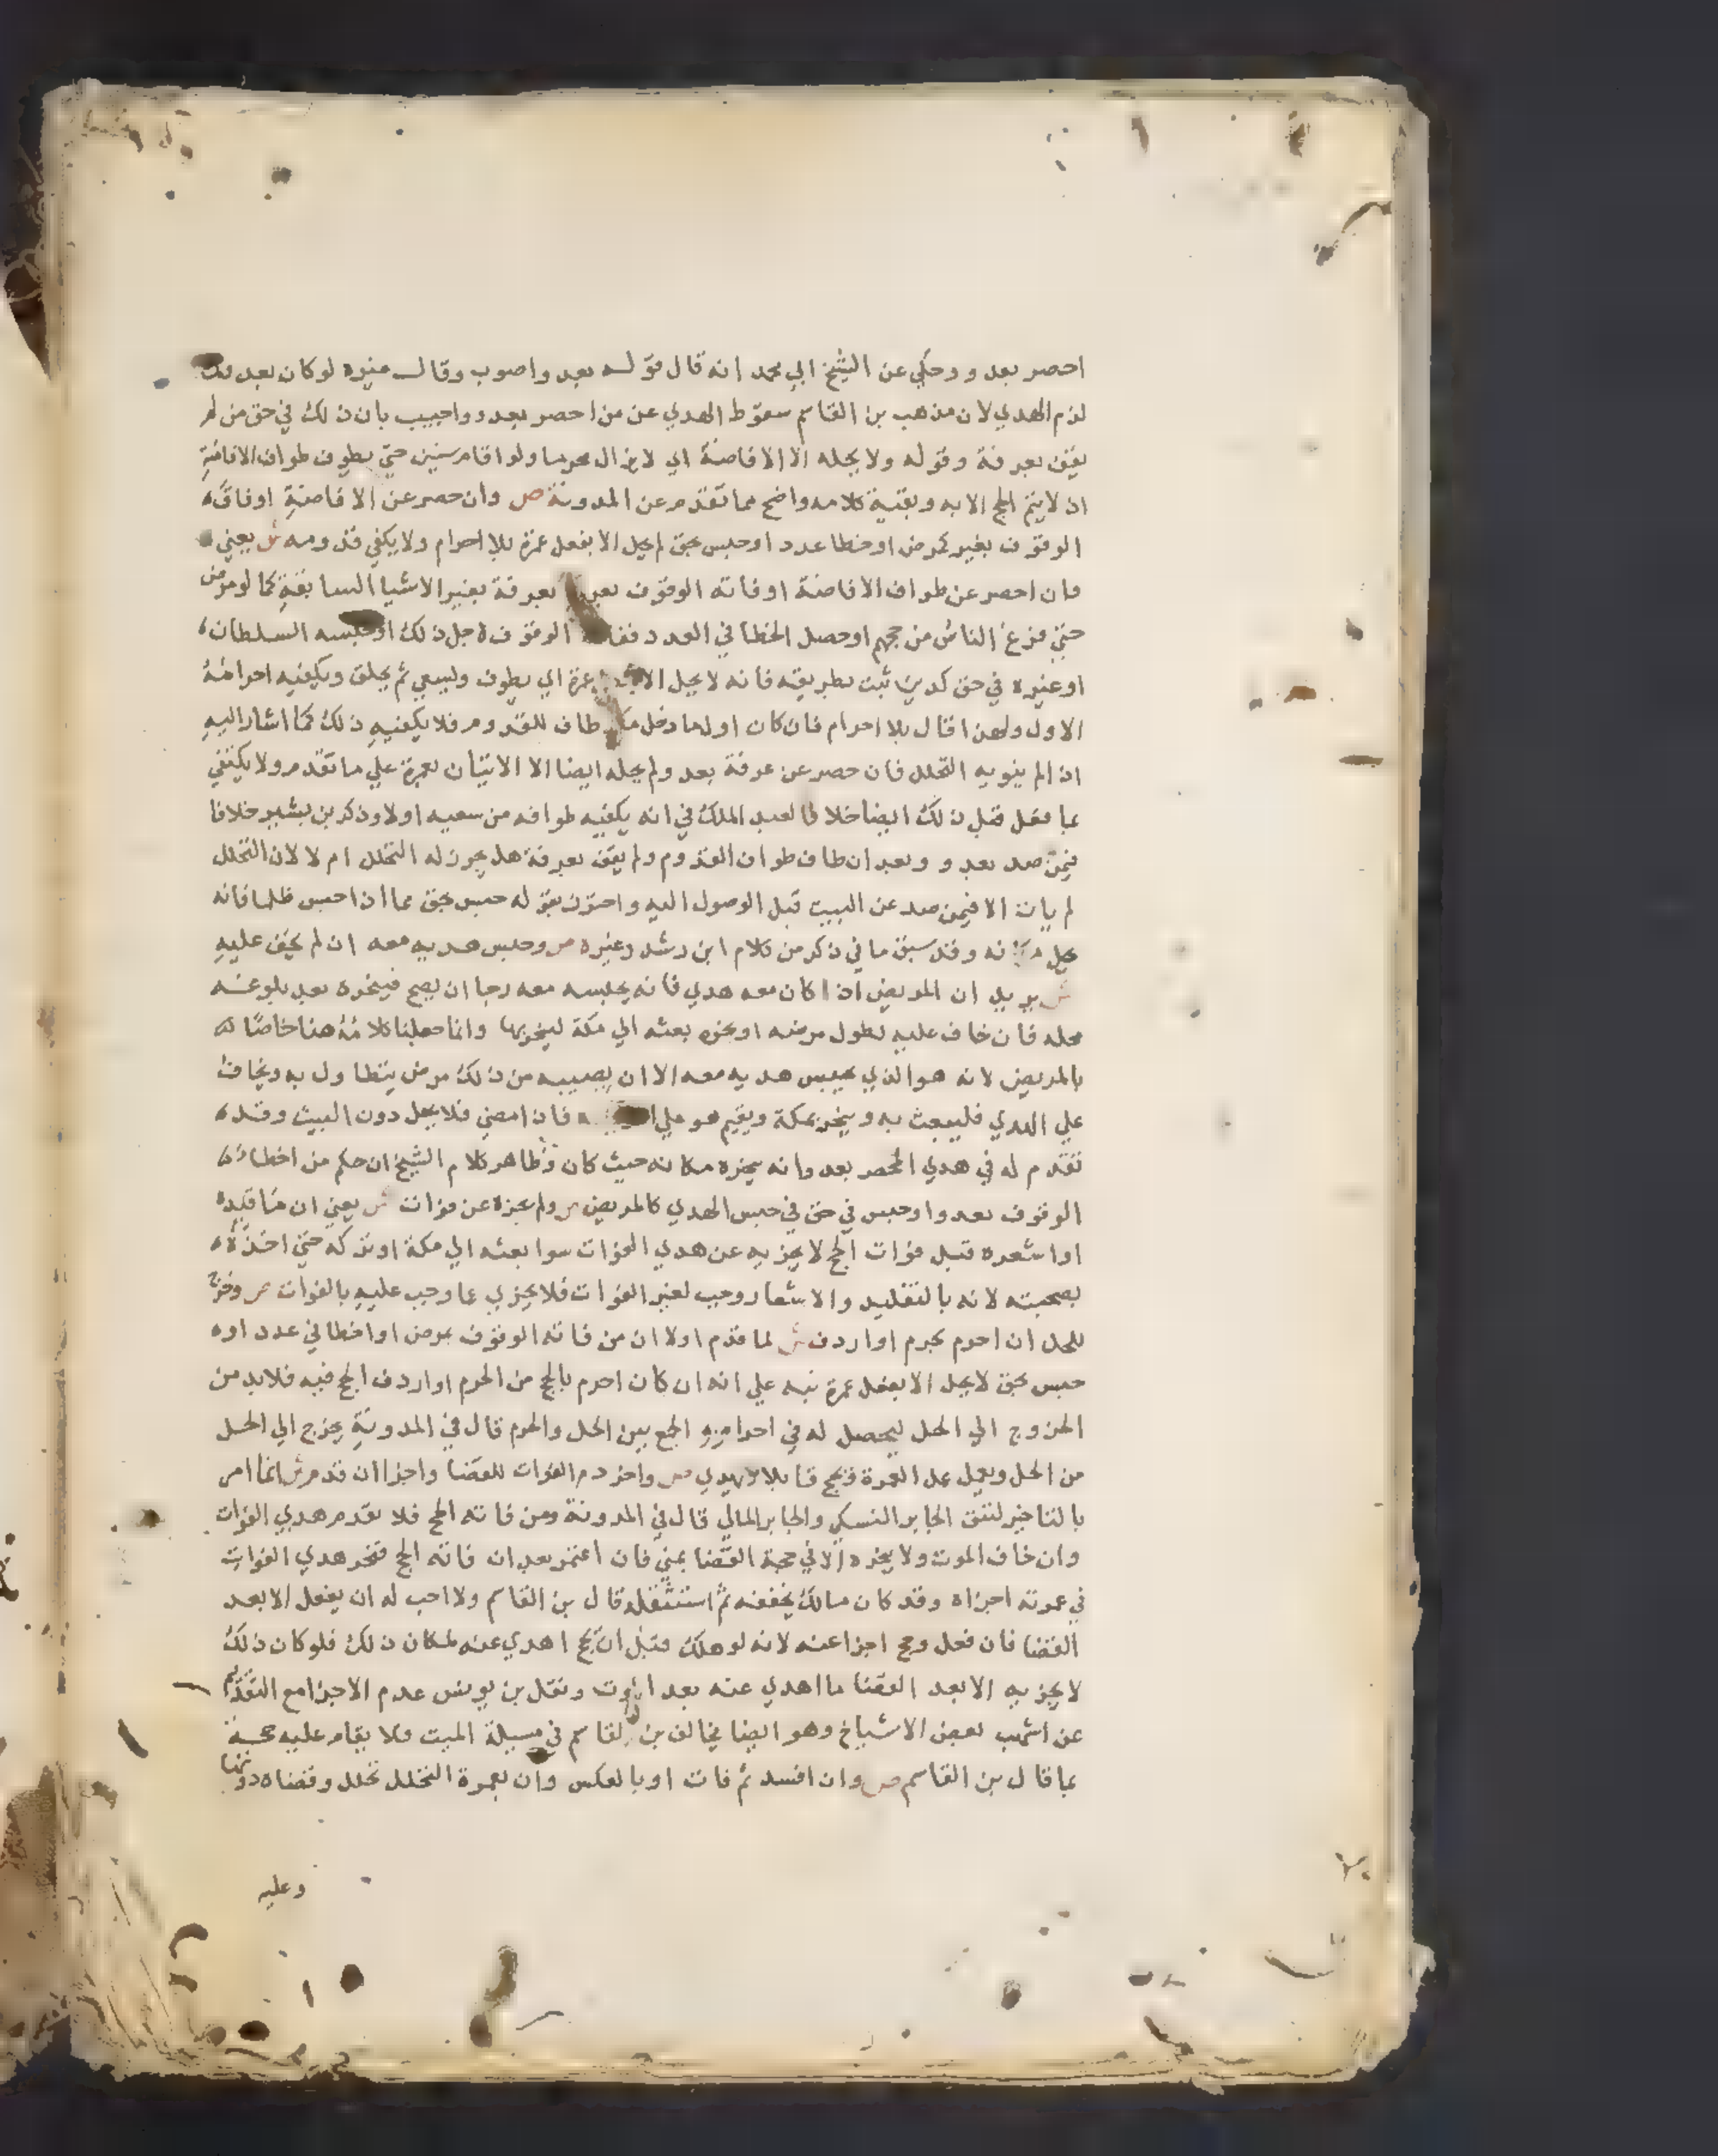 احصر بعدو وحكي عن الشيخ ابي محمد انه قال قوله بعيد واصوب وقال غيره لو كان بعد
لزم الهدي لان مذهب بن القاسم سقوط الهدي عن من احصر بعدو واجيب بان ذلك في حق من لم
يقف بعرفة وقوله ولا يحله الا الافاضة اي لا يزال محرما ولو اقام سنين حتي يطوف طواف الافاضة
اذ لا يتم الحج الا به وبقية كلامه واضح مما تقدم عن المدونة ص وان حصر عن الافاضة اوفاته
الوقوف بغير كمرض او خطا عدد او حبس بحق لم يحل الا بفعل عمرة بلا احرام ولا يكفي قدومه ش يعني
فان احصر عن طواف الافاضة اوفاته الوقوف بعرفة بغير الاشيا السابقة كما لو مرض
حتي فرغ الناس من حجهم او حصل الخطا في العدد الوقوف لاجل ذلك او حبسه السلطان
او غيره في حق كدين ثبت بطريقه فانه لا يحل الا عمرة اي يطوف ويسعي ثم يحلق ويكفيه احرامه
الاول ولهذا قال بلا احرام فان كان اولما دخل طاف للقدوم فلا يكفيه ذلك كما اشار اليه
اذ لم ينو به التحلل فان حصر عن عرفة بعد ولم يحله ايضا الا الاتيان بعمرة علي ما تقدم ولا يكتفي
بما فعل قبل ذلك ايضا خلافا لعبد الملك في انه يكفيه طوافه من سعيه اولا وذكر بن بشير خلافا
فيمن صد بعدو وبعد ان طاف طواف القدوم ولم يقف بعرفة هل يجوز له التحلل ام لا لان التحلل
لم يات الا فيمن صد عن البيت قبل الوصول اليه واحترز بقوله حبس بحق مما اذا حبس ظلما فانه
يحل وقد سبق ما في ذكر من كلام ابن رشد وغيره ص وحبس هديه معه ان لم يخف عليه
ش يريد ان المريض اذا كان معه هدي فانه يحبسه معه رجا ان يصح فينحره بعد بلوغه
محله فان خاف عليه لطول مرضه او نحوه بعثه الي مكة لينحر بها وانما جعلنا كلامه هنا خاصا
بالمريض لانه هو الذي يحبس هديه معه الا ان يصيبه من ذلك مرض يتطاول به ويخاف
علي الهدي فليبعث به وينحر بمكة ويقيم هو علي فان امضي فلا يحل دون البيت وقد
تقدم له في هدي المحصر بعد وانه ينحره مكانه حيث كان وظاهر كلام الشيخ ان حكم من اخطاه
الوقوف بعدو او حبس في حق في حبس الهدي كالمريض ص ولم يجزه عن فوات ش يعني ان ما قلده
او اشعره قبل فوات الحج لا يجزيه عن هدي الفوات سوا بعثه الي مكة او تركه حتي اخذه
بصحبته لانه بالتقليد والاشعار وجب لغير الفوات فلا يجزي عما وجب عليه بالفوات ص وخرج
للحل ان احرم بحرم او اردف ش لما قدم اولا ان من فاته الوقوف بمرض او اخطا في عدد او
حبس بحق لا يحل الا بفعل عمرة نبه علي انه ان كان احرم بالحج من الحرم او اردف الحج فيه فلابد من
الخروج الي الحل ليحصل له في احرامه الجمع بين الحل والحرم قال في المدونة يخرج الي الحل
من الحل ويعمل عمل العمرة فيحج قابلا ويهدي ص واخر دم الفوات للقضا واجزا ان قدم ش انما امر
بالتاخير لتتفق الجابر النسكي والجابر المالي قال في المدونة ومن فاته الحج فلا يقدم هدي الفوات
وان خاف الموت ولا ينحره الا في حجة القضا بمني فان اعتمر بعد ان فاته الحج فنحر هدي الفوات
في عمرته اجزاه وقد كان مالك يخففه ثم استثقله قال بن القاسم ولا احب له ان يفعل الا بعد
القضا فان فعل وحج اجزا عنه لانه لو هلك قبل ان يحج اهدي عنه لمكان ذلك فلو كان ذلك
لا يجزيه الا بعد القضا ما اهدي عنه بعد الموت ونقل بن يونس عدم الاجزا مع التقديم
عن اشهب بعض الاشياخ وهو ايضا يخالف بن القاسم في مسيلة الميت فلا يقام عليه حجة
بما قال بن القاسم ص وان افسد ثم فات او بالعكس وان بعمرة التحلل تحلل وقضاه دونها
وعليه